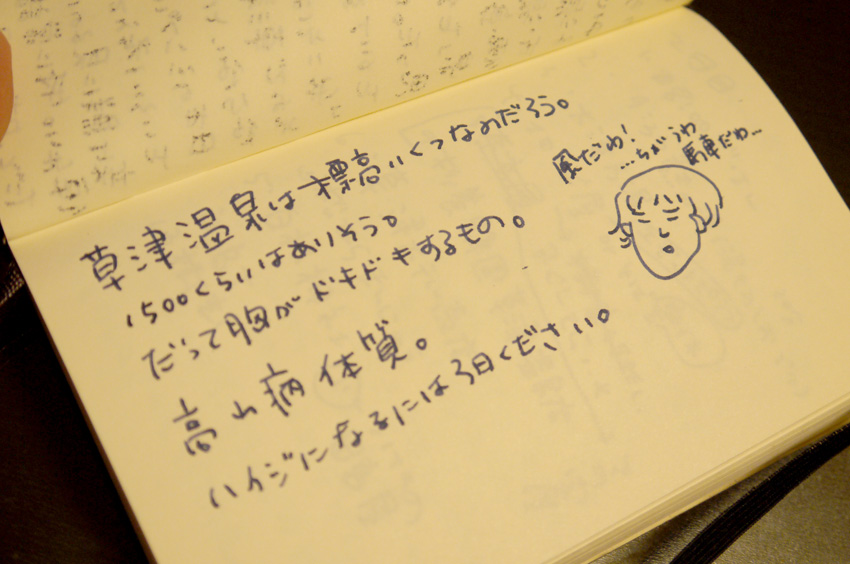 草津温泉は標高いくつなのだろう。
1500くらいはありそう。
だって胸がドキドキするもの。
高山病体質。
ハイジになるには3日ください。
風だわ!
…ちがうわ
馬車だわ…